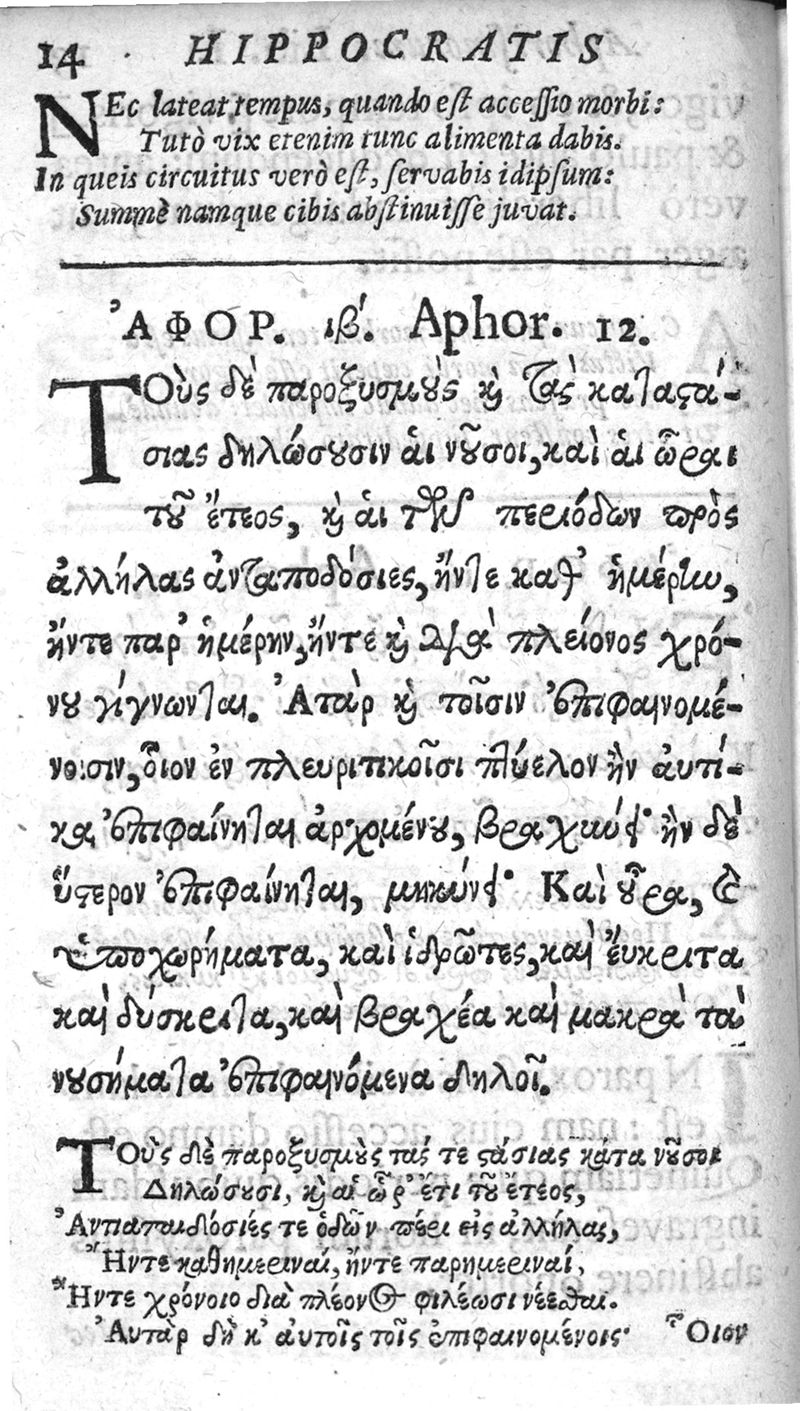 14 HIPPOCRATIS
NEc lateat tempus, quando est accessio morbi:
Tutò vix etenim tunc alimenta dabis.
In queis circuitus verò est, servabis idipsum:
Summè namque cibis abstinuisse juvat.
ἈΦΟΡ. ιβ'. Aphor. 12.
ΤΟὺς δὲ παροξυσμοὺς καὶ τὰς καταστά-
σιας δηλώσουσιν ἁι νοῦσοι, καὶ ἁι ὧραι
τοῦ ἔτεος, καὶ ἁι τῶν περιόδων πρὸς
ἀλλήλας ἀνταποδόσιες, ἤντε καθ' ἡμέρην,
ἤντε παρ' ἡμέρην, ἤντε καὶ διὰ πλείονος χρό-
νου γίγνωνται. Ἀτὰρ καὶ τοῖσιν ἐπιφαινομέ-
νοισιν, ὃιον ἐν πλευριτικοῖσι πτύελον ἢν ἀυτί-
κα ἐπιφαίνηται ἀρχομένου, βραχύνει· ἢν δὲ
ὕστερον ἐπιφαίνηται, μηκύνει· Καὶ οὖρα, καὶ
ὑποχωρήματα, καὶ ἱδρῶτες, καὶ ἔυκριτα
καὶ δύσκριτα, καὶ βραχέα καὶ μακρὰ τὰ
νουσήματα ἐπιφαινόμενα δηλοῖ.
ΤΟὺς δὲ παροξυσμοὺς τάς τε στάσιας κάτα νοῦσοι
Δηλώσουσι, καὶ αἱ ὧρ' ἔτι τοῦ ἔτεος,
Ἀνταποιδόσιές τε ὁδῶν πέρι εἰς ἀλλήλας,
Ἤντε καθημεριναί, ἤντε παρημεριναί,
Ἤντε χρόνοιο διὰ πλέονος φιλέωσι νέεσθαι.
Ἀυτὰρ δὴ κ' ἀυτοῖς τοῖς ἐπιφαινομένοις·
Ὃιον